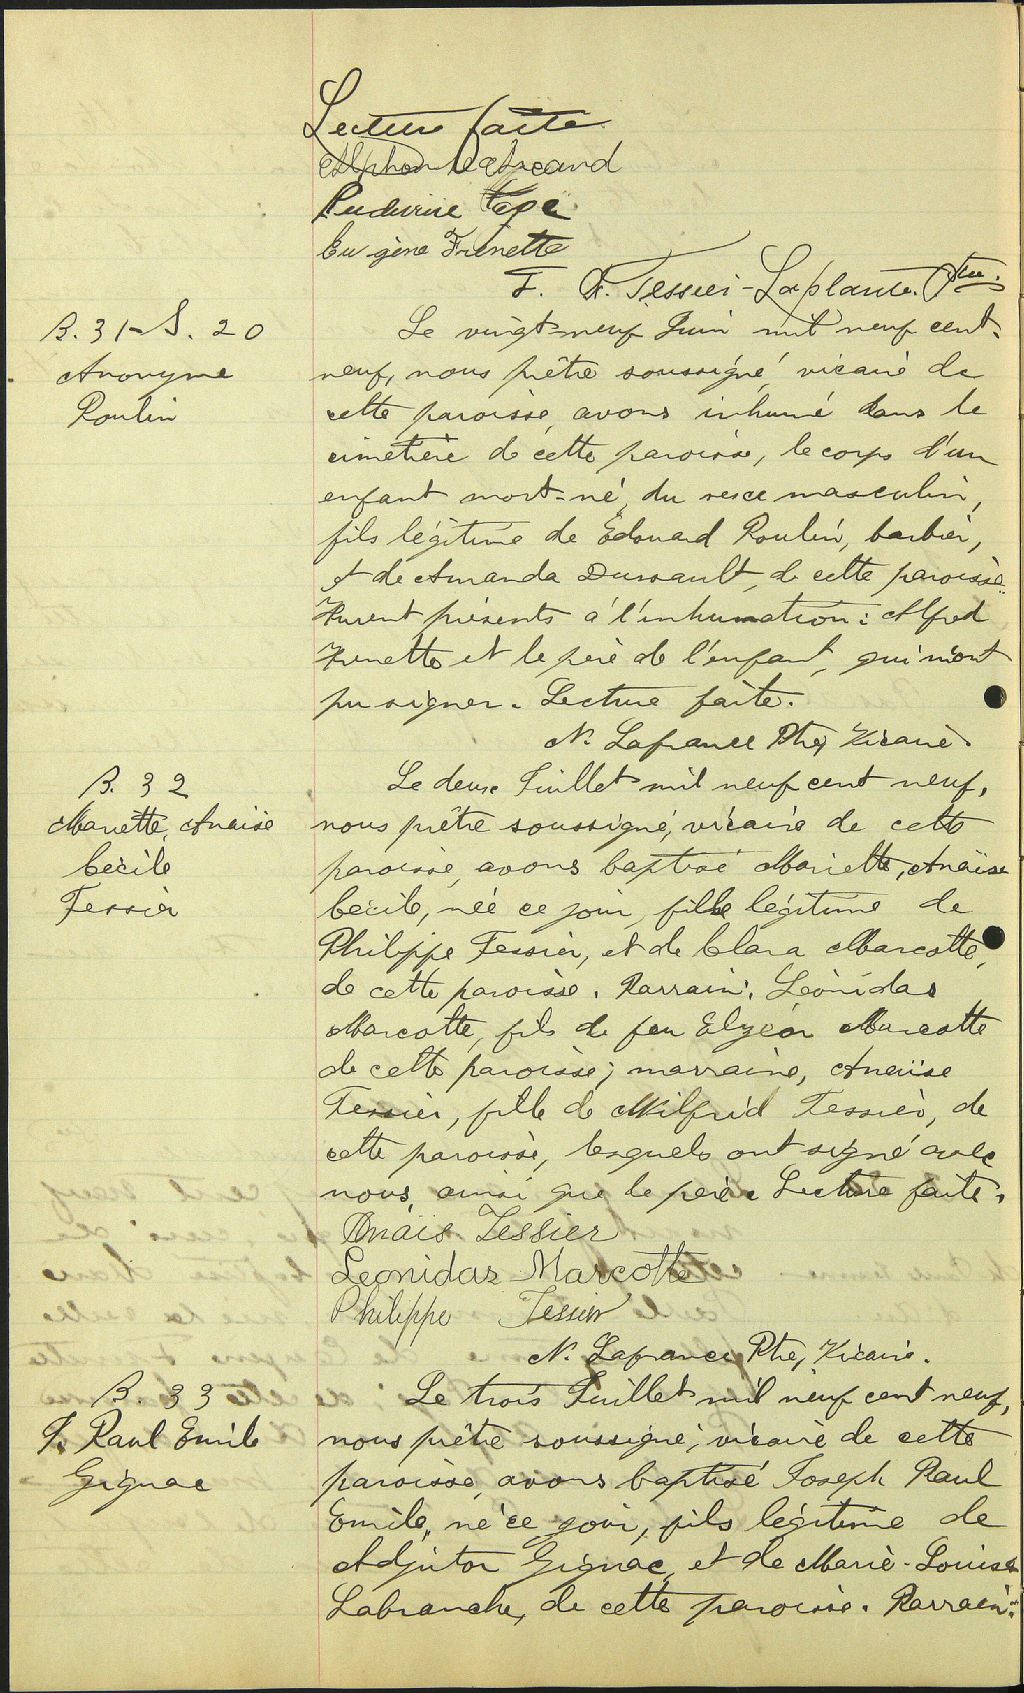 Lecture faite
Alphonse Arcand
Ludivine Pagé
Eugène Frenette
F. X. Tessier-Laplante, Ptre.
B. 31-S. 20
Anonyme
Poulin
Le vingt-neuf Juin mil neuf cent-
neuf, nous prêtre soussigné, vicaire de
cette paroisse, avons inhumé dans le
cimetière de cette paroisse, le corps d'un
enfant mort-né, du sexe masculin,
fils légitime de Edouard Poulin, barbier,
et de Amanda Dussault, de cette paroisse.
Furent présents à l'inhumation: Alfred
Frenette et le père de l'enfant, qui n'ont
pu signer. Lecture faite.
N. Lafrance Ptre, Vicaire.
B. 32
Mariette, Anaïse
Cécile
Tessier
Le deux Juillet mil neuf cent neuf,
nous prêtre soussigné, vicaire de cette
paroisse, avons baptisé Mariette, Anaïse
Cécile, née ce jour, fille légitime de
Philippe Tessier, et de Clara Marcotte,
de cette paroisse. Parrain: Léonidas
Marcotte, fils de feu Elzéar Marcotte
de cette paroisse; marraine, Anaïse
Tessier, fille de Wilfrid Tessier, de
cette paroisse, lesquels ont signé avec
nous, ainsi que le père. Lecture faite.
Anaïs Tessier
Leonidas Marcotte
Philippe Tessier
N. Lafrance Ptre, Vicaire.
B. 33
J. Paul Emile
Gignac
Le trois Juillet mil neuf cent neuf,
nous prêtre soussigné, vicaire de cette
paroisse, avons baptisé Joseph Paul
Emile, né ce jour, fils légitime de
Adjutor Gignac, et de Marie-Louise
Labranche, de cette paroisse. Parrain: